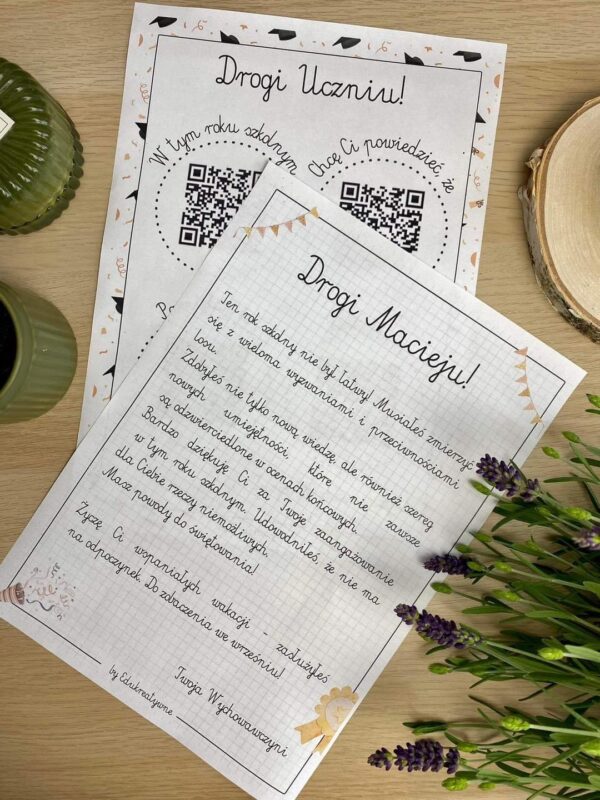 Drogi Uczniu!
W tym roku szkolnym
Chcę Ci powiedzieć, że
Drogi Macieju!
Ten rok szkolny nie był łatwy! Musiałeś zmierzyć
się z wieloma wyzwaniami i przeciwnościami
losu.
Zdobyłeś nie tylko nową wiedzę, ale również szereg
nowych umiejętności, które nie zawsze
są odzwierciedlone w ocenach końcowych.
Bardzo dziękuję Ci za Twoje zaangażowanie
w tym roku szkolnym. Udowodniłeś, że nie ma
dla Ciebie rzeczy niemożliwych.
Masz powody do świętowania!
Życzę Ci wspaniałych wakacji - zasłużyłeś
na odpoczynek. Do zobaczenia we wrześniu!
Twoja Wychowawczyni
by Edukreatywne